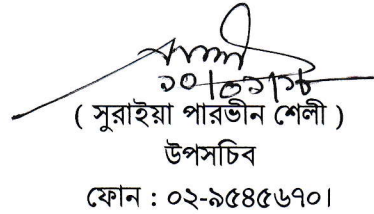 ১০/০১/১৮
( সুরাইয়া পারভীন শেলী )
উপসচিব
ফোন : ০২-৯৫৪৫৬৭০।